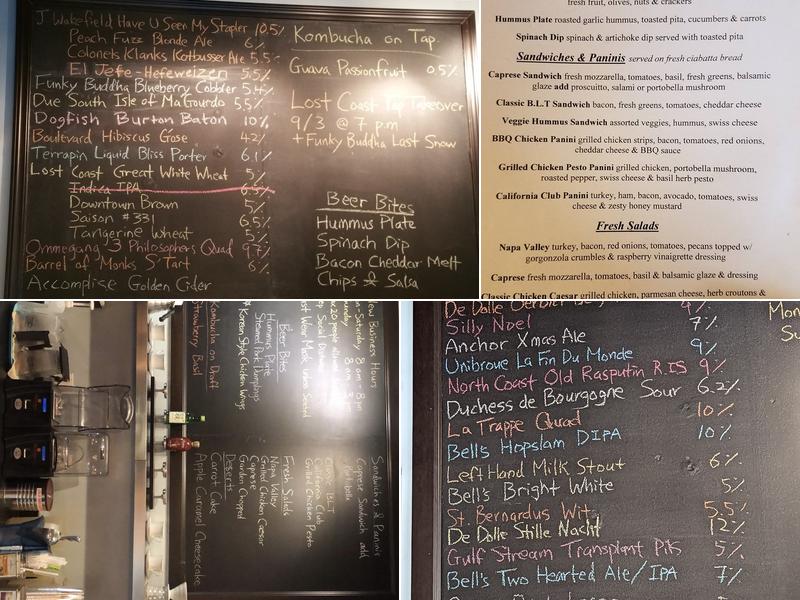 J Wakefield Have U Seen My Stapler 10.5%
Peach Fuzz Blonde Ale 6%
Colonels Klanks Kotbusser Ale 5.5%
El Jefe-Hefeweizen 5.5%
Funky Buddha Blueberry Cobbler 5.4%
Due South Isle of Ma'Gourdo 5.5%
Dogfish Burton Baton 10%
Boulevard Hibiscus Gose 4.2%
Terrapin Liquid Bliss Porter 6.1%
Lost Coast Great White Wheat 5%
Indica IPA 6.5%
Downtown Brown 5%
Saison #331 6.5%
Tangerine Wheat 5%
Ommegang 3 Philosophers Quad 9.7%
Barrel of Monks S'Tart 6%
Accomplice Golden Cider
Kombucha on Tap
Guava Passionfruit 0.5%
Lost Coast Tap Takeover
9/3 @ 7 p.m
+ Funky Buddha Last Snow
Beer Bites
Hummus Plate
Spinach Dip
Bacon Cheddar Melt
Chips & Salsa
fresh fruit, olives, nuts & crackers
Hummus Plate roasted garlic hummus, toasted pita, cucumbers & carrots
Spinach Dip spinach & artichoke dip served with toasted pita
Sandwiches & Paninis served on fresh ciabatta bread
Caprese Sandwich fresh mozzarella, tomatoes, basil, fresh greens, balsamic
glaze add prosciutto, salami or portobella mushroom
Classic B.L.T Sandwich bacon, fresh greens, tomatoes, cheddar cheese
Veggie Hummus Sandwich assorted veggies, hummus, swiss cheese
BBQ Chicken Panini grilled chicken strips, bacon, tomatoes, red onions,
cheddar cheese & BBQ sauce
Grilled Chicken Pesto Panini grilled chicken, portobella mushroom,
roasted pepper, swiss cheese & basil herb pesto
California Club Panini turkey, ham, bacon, avocado, tomatoes, swiss
cheese & zesty honey mustard
Fresh Salads
Napa Valley turkey, bacon, red onions, tomatoes, pecans topped w/
gorgonzola crumbles & raspberry vinaigrette dressing
Caprese fresh mozzarella, tomatoes, basil & balsamic glaze & dressing
Classic Chicken Caesar grilled chicken, parmesan cheese, herb croutons &
New Business Hours
Saturday 8am - 8pm
Beer Bites
Hummus Plate
Steamed Pork Dumplings
Korean Style Chicken Wings
Kombucha on Draft
Strawberry Basil
Sandwiches & Paninis
Caprese Sandwich add
Classic BLT
California Club
Grilled Chicken Pesto
Fresh Salads
Napa Valley
Grilled Chicken Caesar
Caprese
Garden Chopped
Desserts
Carrot Cake
Apple Caramel Cheesecake
De Dolle
Silly Noel 7%
Anchor Xmas Ale
Unibroue La Fin Du Monde 9%
North Coast Old Rasputin R.IS 9%
Duchess de Bourgogne Sour 6.2%
La Trappe Quad 10%
Bell's Hopslam DIPA 10%
Left Hand Milk Stout 6%
Bell's Bright White 5%
St. Bernardus Wit 5.5%
De Dolle Stille Nacht 12%
Gulf Stream Transplant Pils 5%
Bell's Two Hearted Ale/IPA 7%
Mon
Su